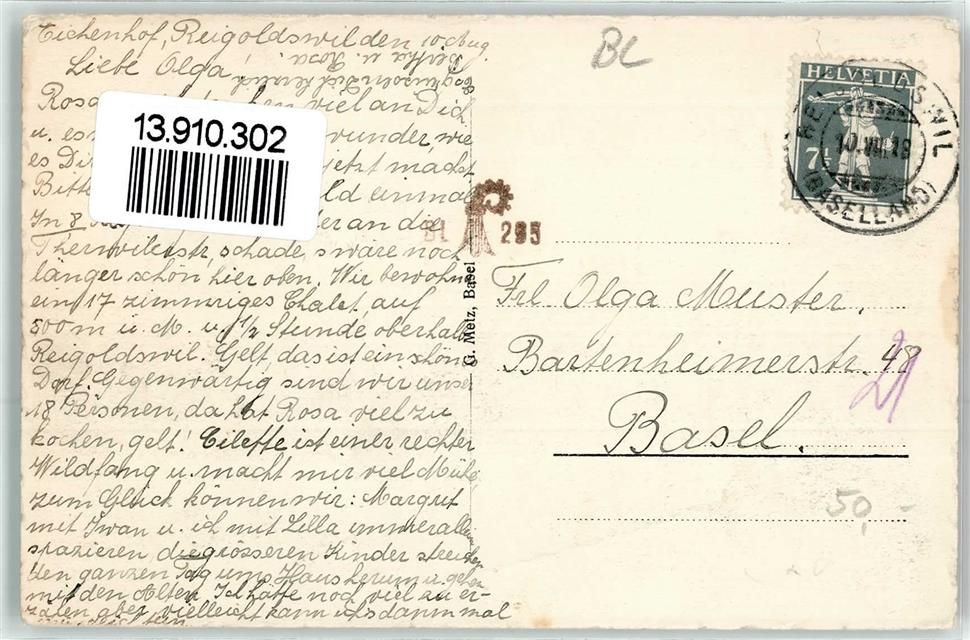 Eichenhof, Reigoldswil den 10. Aug.
Liebe Olga!
Rosa viel an Dich
u. es wunder wie
es Di jetzt macht
Bitte ld einmal
In 8 er an die
Therwilerstr, schade, s wäre noch
länger schön hier oben. Wir bewohn
ein 17 zimmriges Chalet, auf
800 m ü. M. u. 1/2 Stunde oberhalb
Reigoldswil. Gelt, das ist ein schön
Dorf. Gegenwärtig sind wir unser
18 Personen, da hat Rosa viel zu
kochen, gelt! ist einer rechter
Wildfang u. macht mir viel Mühe
zum Glück können wir: Margrit
mit Iwan u. ich mit Lilla immer allein
spazieren die grösseren Kinder
den ganzen Tag ums Haus herum u. gehen
mit den Alten. Ich hätte noch viel zu er-
zälen aber vielleicht kann ichs dann mal
13.910.302
BL
HELVETIA
7½
10.VIII.
(BASELLAND)
BL 295
G. Metz, Basel
Frl. Olga Muster.
Bartenheimerstr. 48
21
Basel.
50,-